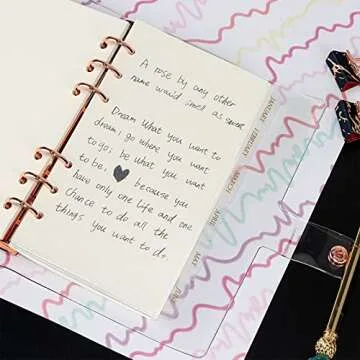 A rose by any other
name would smel as sweet
Dream What you want to
dream; go where you want
to go; be what you want
to be, because you
have only one life and one
chance to do all the
things you want to do.
JANUARY
FEBRUARY
MARCH
APRIL
MAY
JUNE